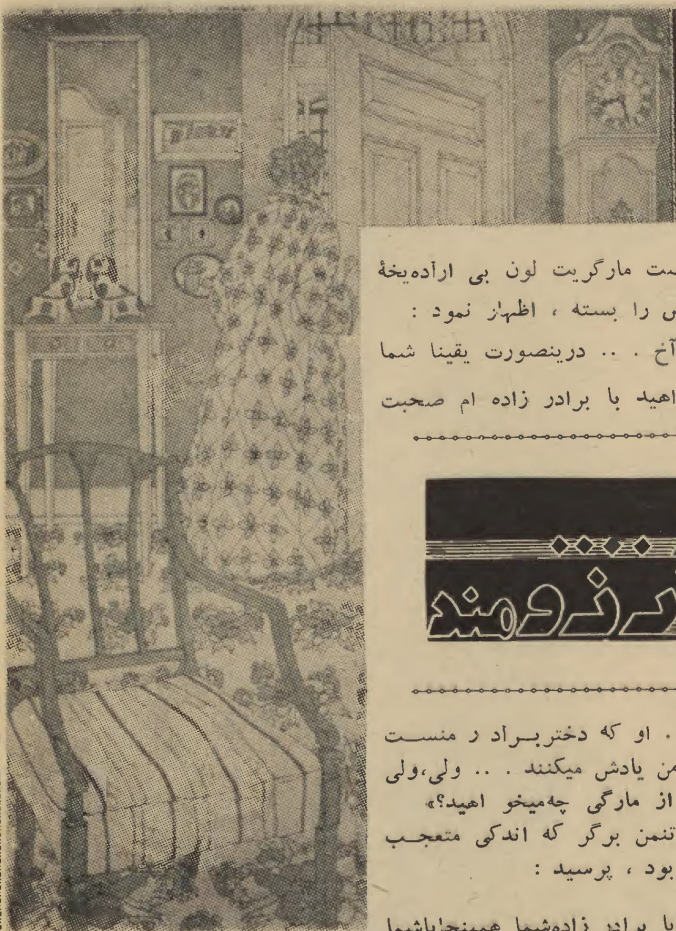 مارگریت لون بی ارادهیخهٔ
را بسته ، اظهار نمود :
آخ . .. درینصورت یقینا شما
با برادر زاده ام صحبت
. او که دختربرادر منست
یادش میکنند . .. ولی،ولی
از مارگی چهمیخو اهید؟»
برگر که اندکی متعجب
بود ، پرسید :
برادر زادهشما همینجاباشما